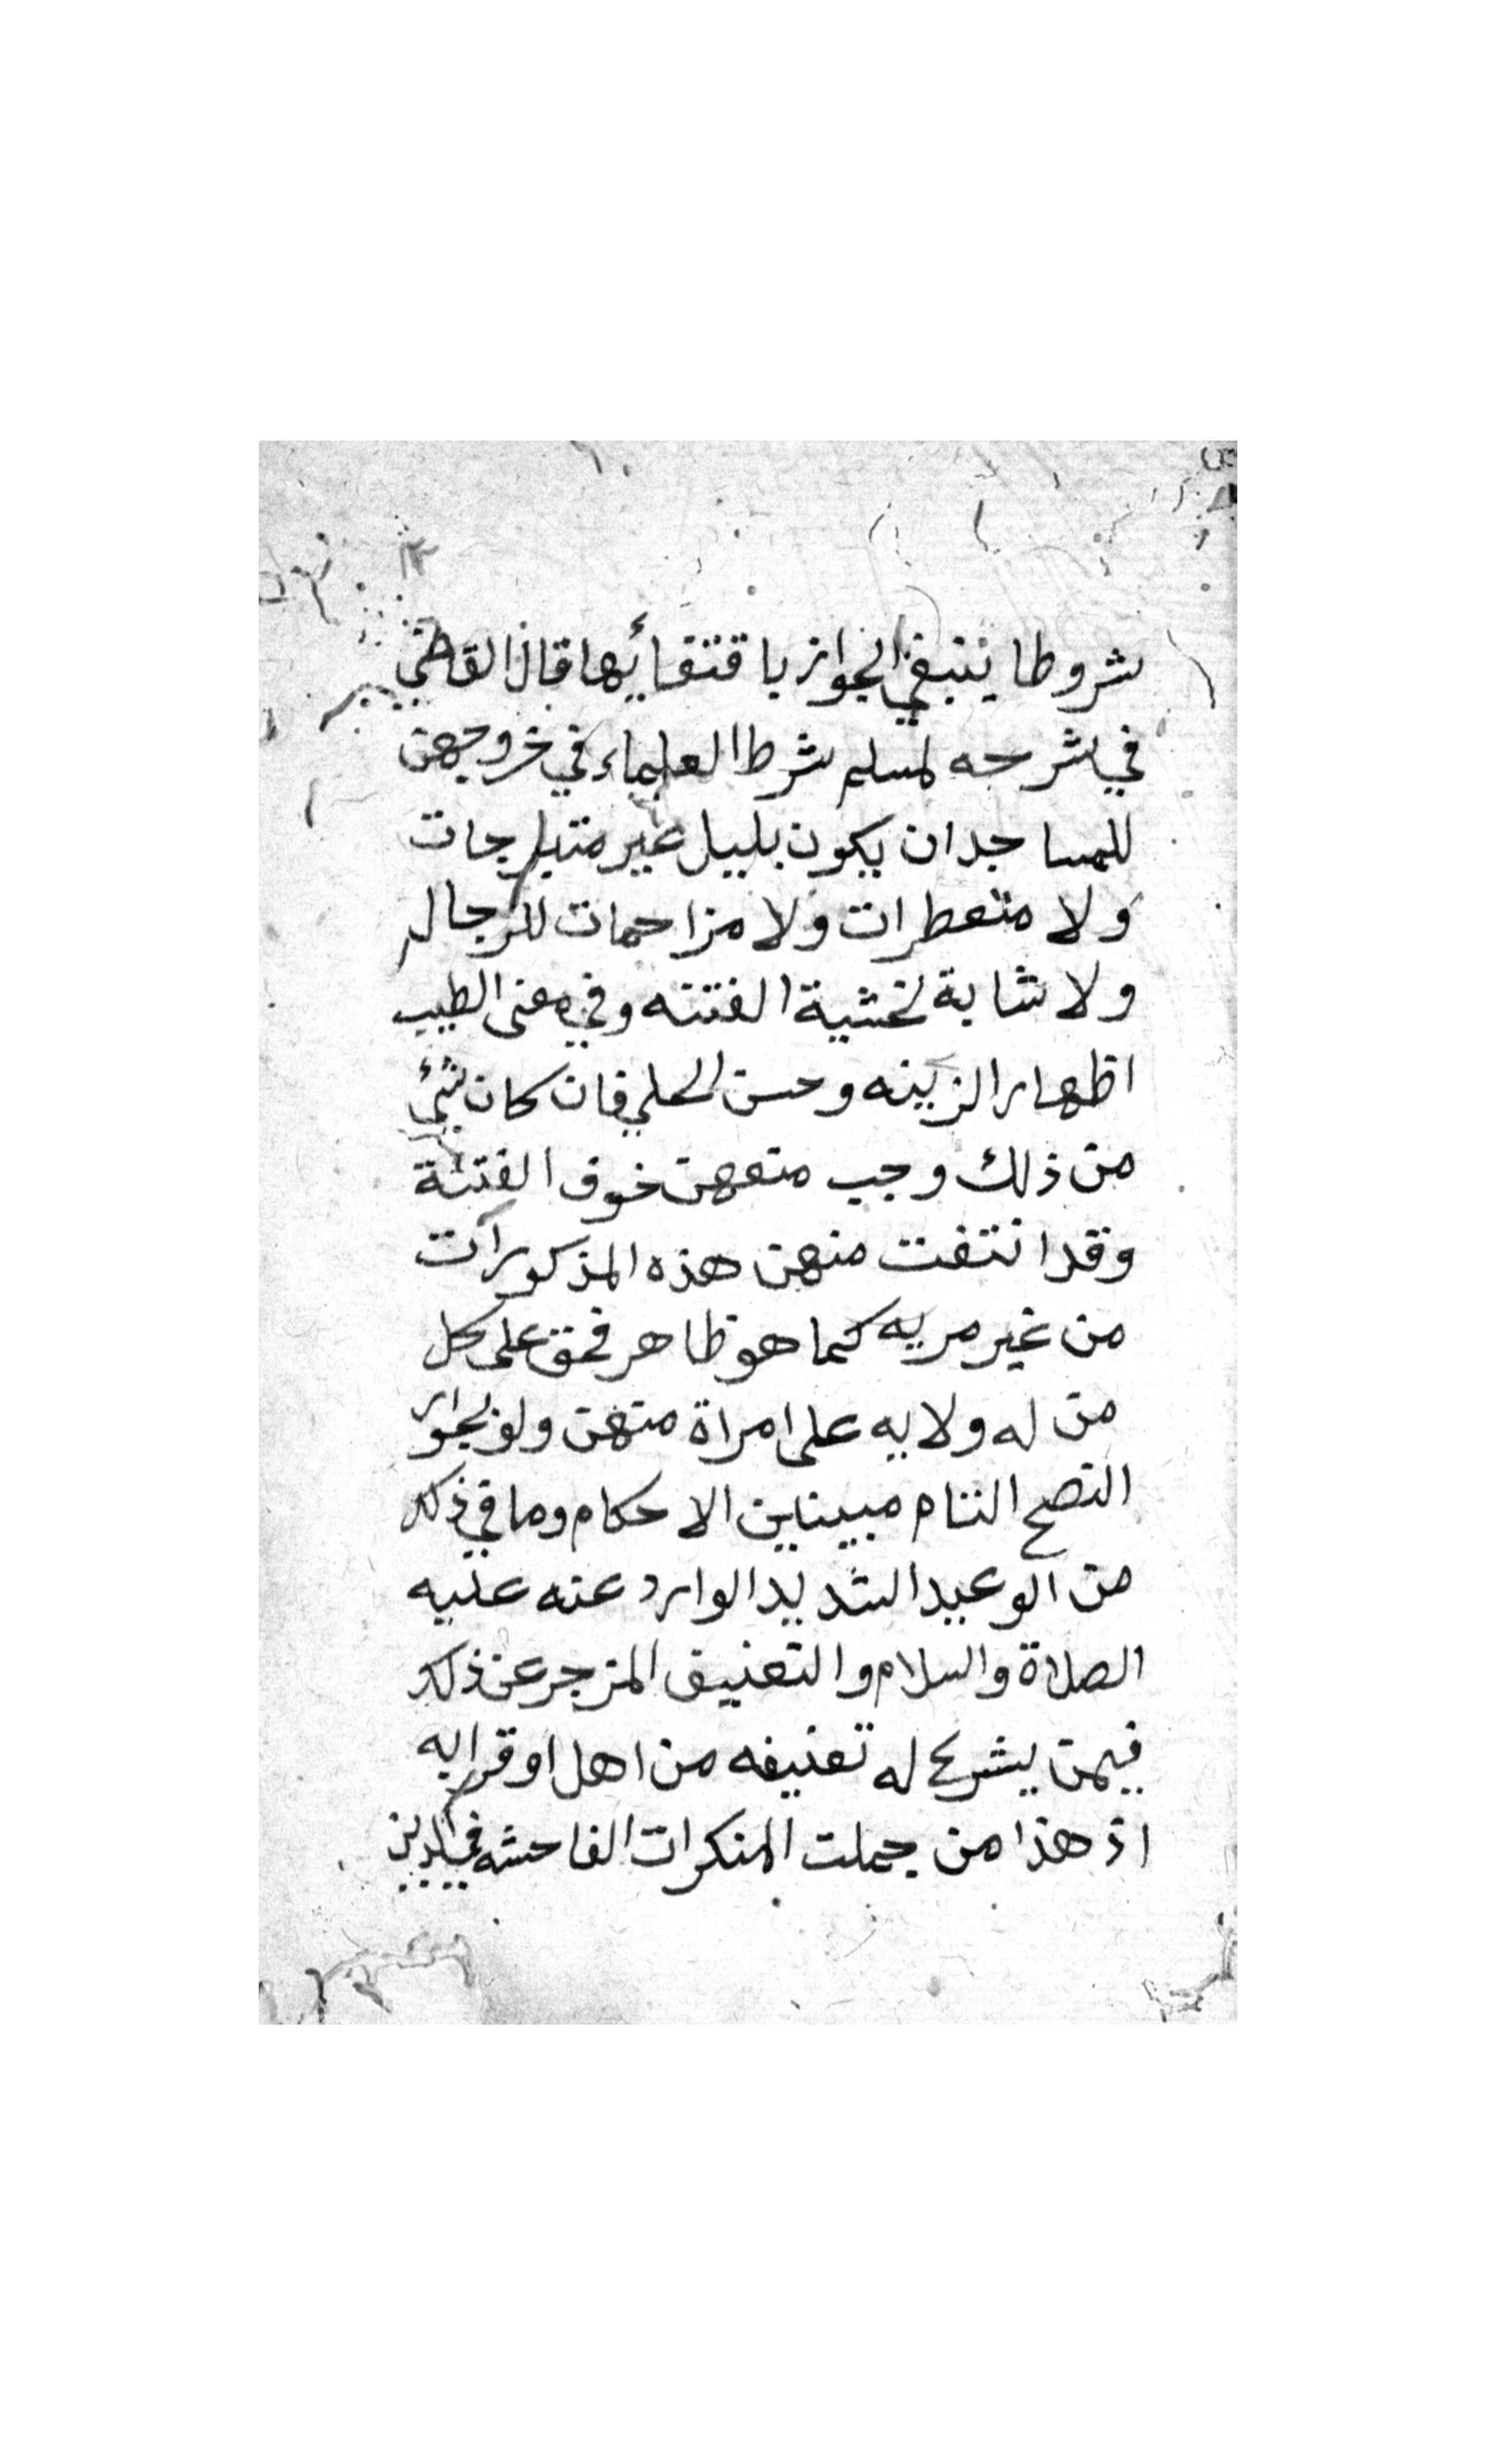 شروطا ينبغي الجواز باقتفائها قال القاضي
في شرحه لمسلم شرط العلماء في خروجهن
للمساجد ان يكون بليل غير متبرجات
ولا متعطرات ولا مزاحمات للرجال
ولا شابة لخشية الفتنه وفي معنى الطيب
اظهار الزينه وحسن الحلي فان كان شئ
من ذلك وجب منعهن خوف الفتنة
وقد انتفت منهن هذه المذكورات
من غير مريه كما هو ظاهر فحق على كل
من له ولايه على امراة منهن ولو بجوار
النصح التام مبينا الاحكام وما في ذلك
من الوعيد الشديد الوارد عنه عليه
الصلاة والسلام والتعنيف المزجر عن ذلك
فيمن يشرع له تعنيفه من اهل او قرابه
اذ هذا من جملت المنكرات الفاحشه في الدين